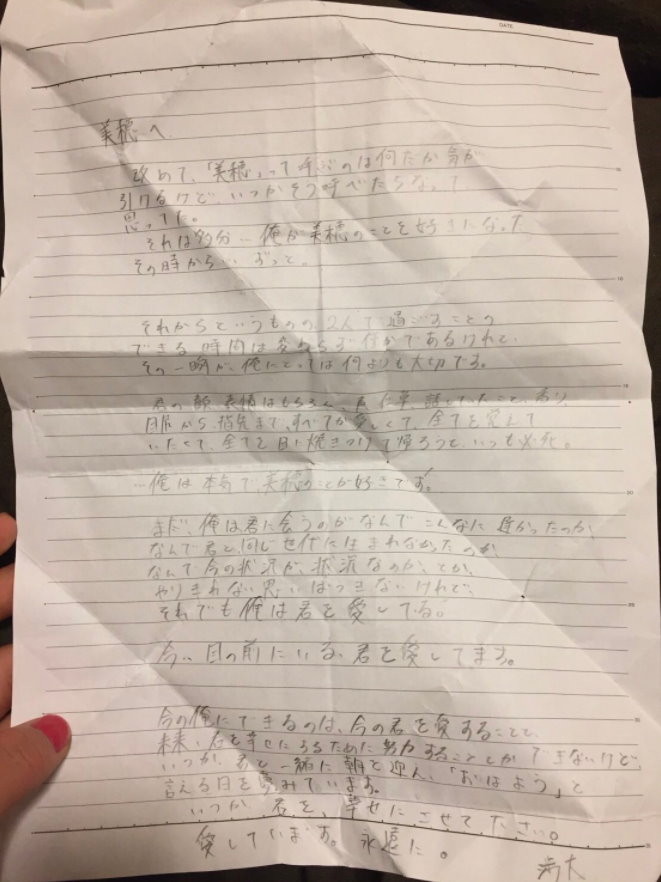 DATE
美穂へ
改めて、「美穂」って呼ぶのは何だか気が
引けるけど、いつかそう呼べたらなって
思ってた。
それは多分…俺が美穂のことを好きになった
その時から… ずっと。
それからというものの2人で過ごすことの
できる時間は変わらず僅かであるけれど、
その一瞬が、俺にとっては何よりも大切です。
君の顔、表情はもちろん、
目尻から、指先まで、すべてが愛しくて、全てを覚えて
いたくて、全てを目に焼きつけて帰ろうと、いつも必死。
…俺は本気で、美穂のことが好きです。
まだ、俺は君に会うのがなんでこんなに遅かったのか、
なんで君と同じ世代に生まれなかったのか、
なんで今の状況が、状況なのか、とか、
やりきれない思いはつきないけれど、
それでも俺は君を愛してる。
今、目の前にいる、君を愛してます。
今の俺にできるのは、今の君を愛することと、
未来、君を幸せにするために努力することしかできないけど、
いつか、君と一緒に朝を迎え、「おはよう」と
言える日を夢みています。
いつか、君を、幸せにさせてください。
愛しています。永遠に。